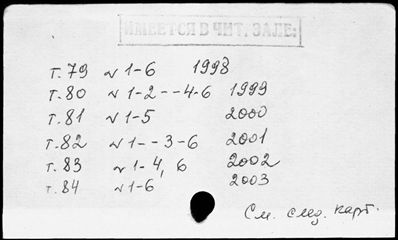 ИМЕЕТСЯ В ЧИТ. ЗАЛЕ:
т. 79 № 1-6 1998
т. 80 № 1-2--4-6 1999
т. 81 № 1-5 2000
т. 82 № 1--3-6 2001
т. 83 № 1-4, 6 2002
т. 84 № 1-6 2003
См. след. карт.